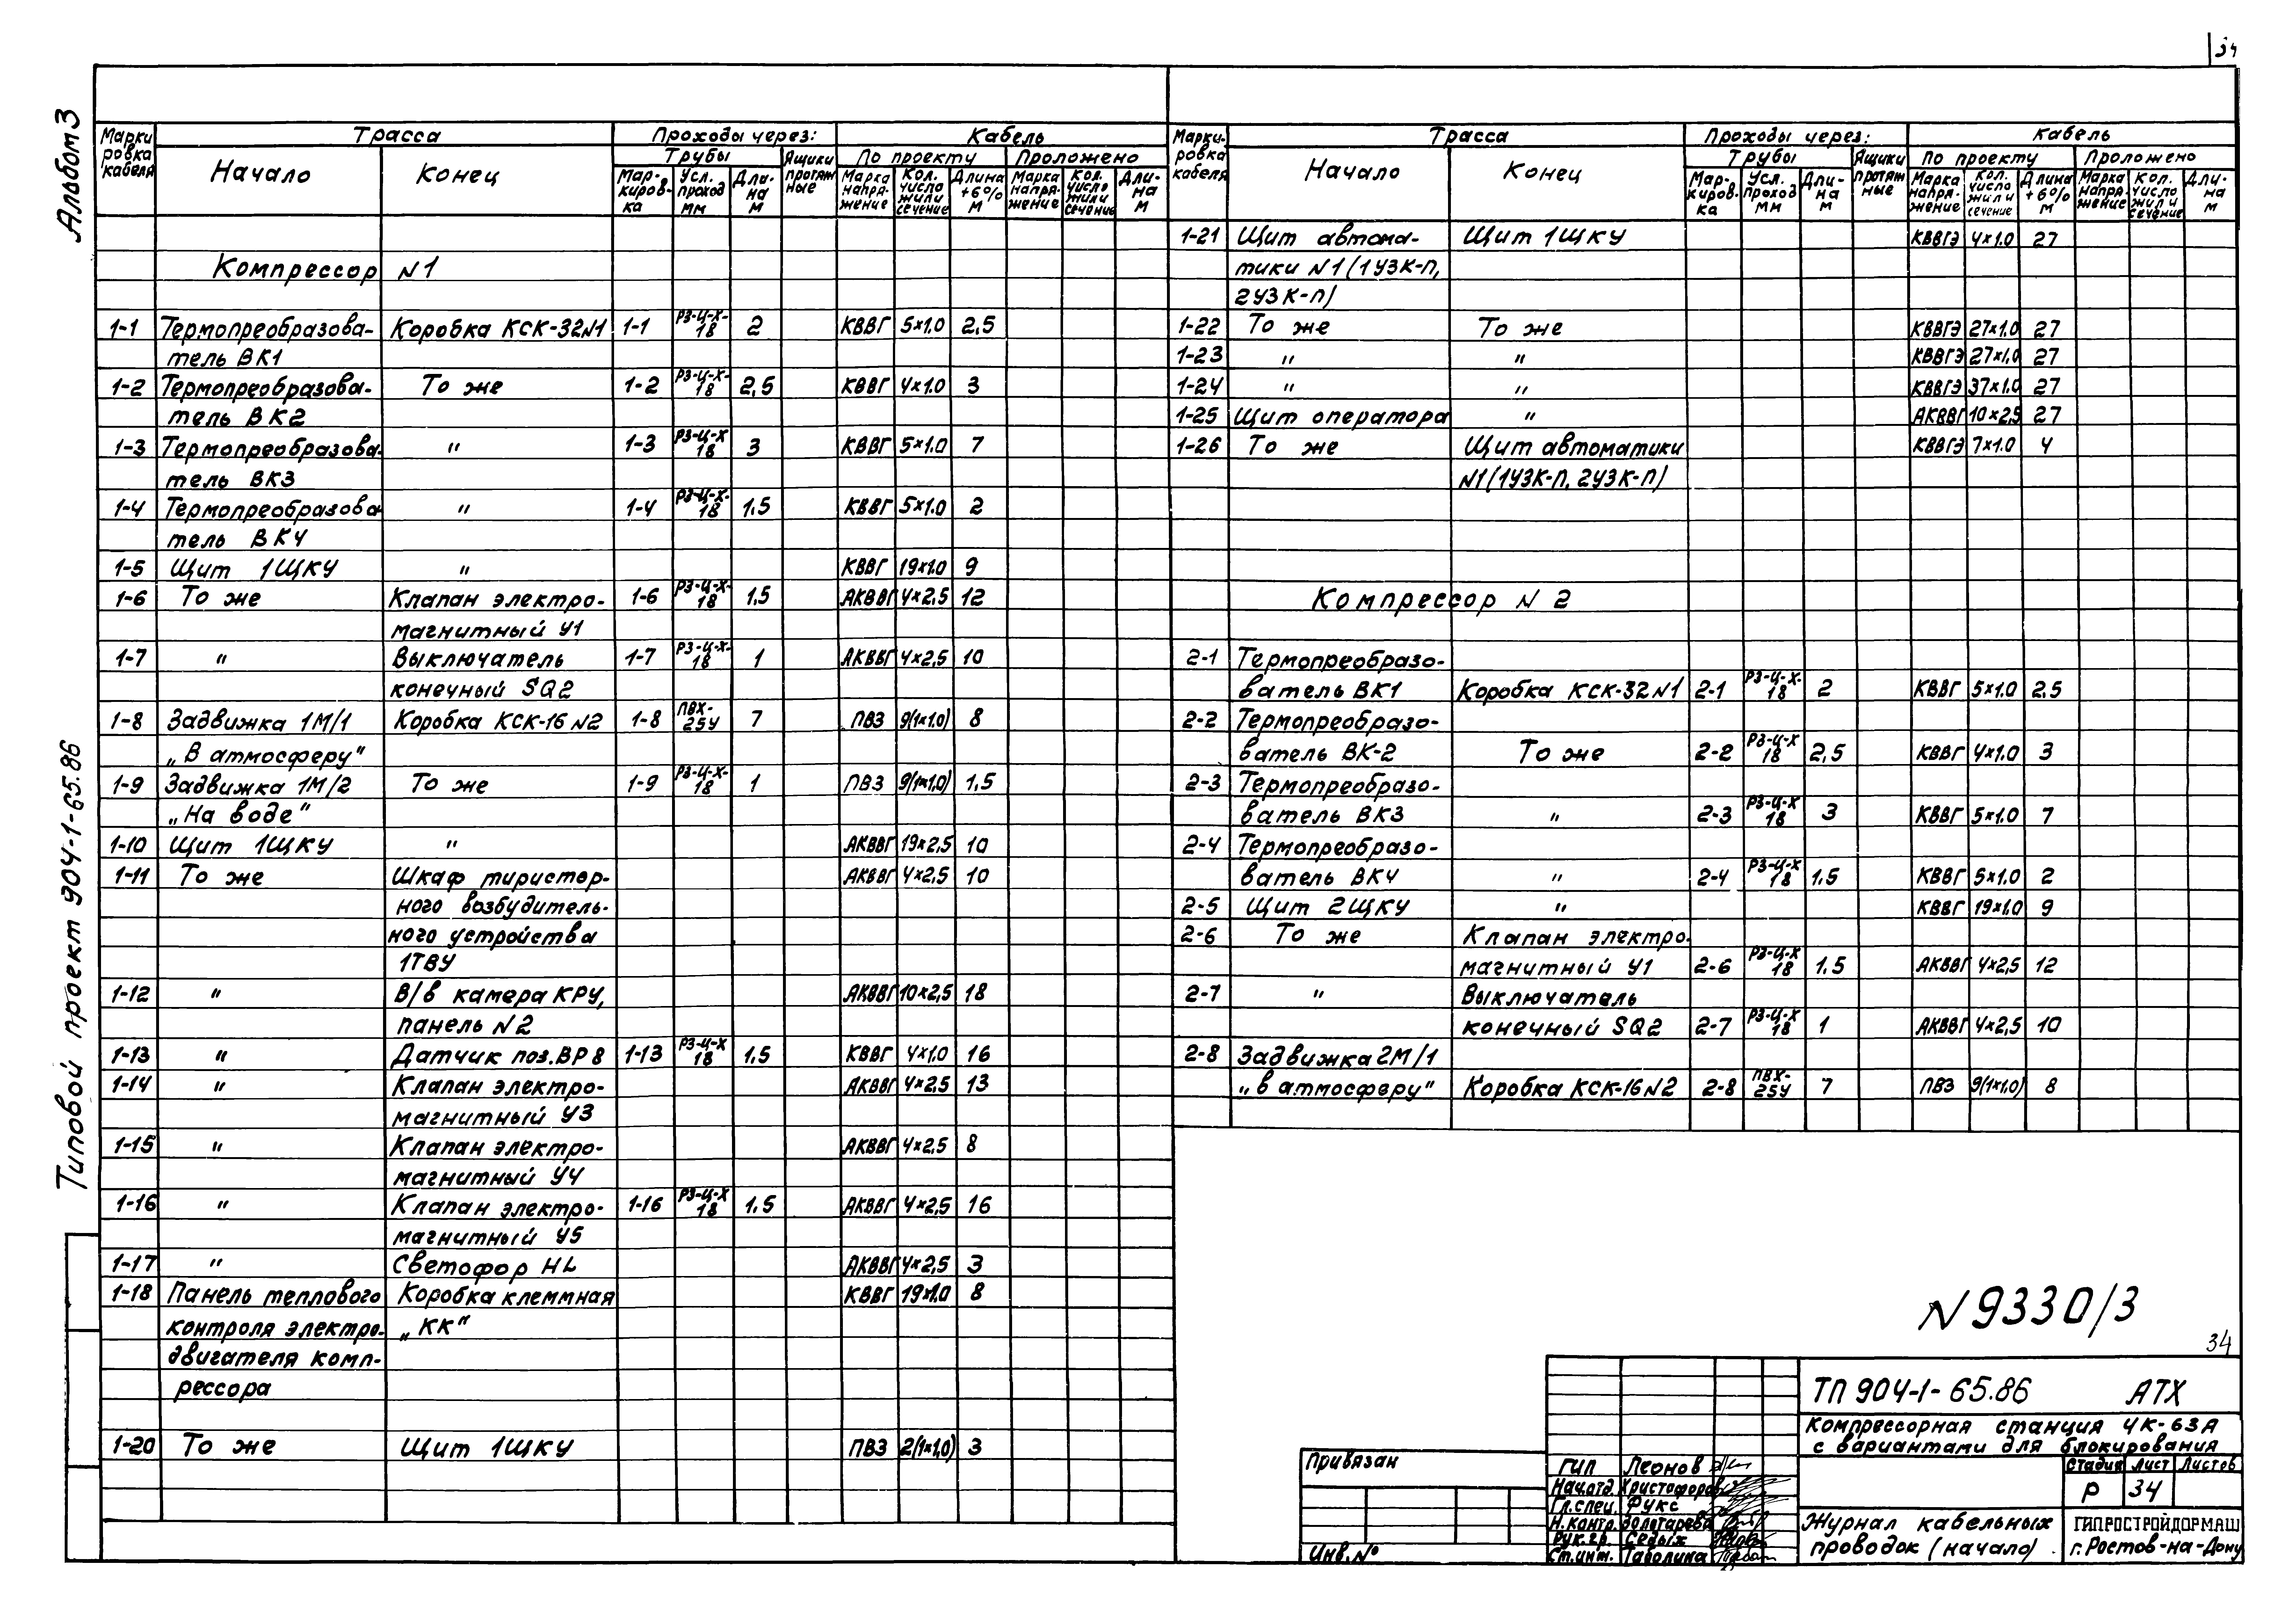 34
Альбом 3
Типовой проект 904-1-65.86
Марки ровка кабеля | Трасса | Проходы через: | Кабель
Начало | Конец | Трубы | Ящики протяж ные | По проекту | Проложено
Мар- киров- ка | Усл. проход мм | Дли- на м | Марка напря- жение | Кол. число жил и сечение | Длина +6% м | Марка напря- жение | Кол. число жил и сечение | Дли- на м
Компрессор N1
1-1 Термопреобразова- Коробка КСК-32N1 1-1 РЗ-Ц-Х-18 2 КВВГ 5×1.0 2,5
тель ВК1
1-2 Термопреобразова- То же 1-2 РЗ-Ц-Х-18 2,5 КВВГ 4×1.0 3
тель ВК2
1-3 Термопреобразова- " 1-3 РЗ-Ц-Х 18 3 КВВГ 5×1.0 7
тель ВК3
1-4 Термопреобразова " 1-4 РЗ-Ц-Х-18 1.5 КВВГ 5×1.0 2
тель ВК4
1-5 Щит 1ЩКУ " КВВГ 19×1.0 9
1-6 То же Клапан электро- 1-6 РЗ-Ц-Х-18 1.5 АКВВГ 4×2,5 12
магнитный У1
1-7 " Выключатель 1-7 РЗ-Ц-Х-18 1 АКВВГ 4×2,5 10
конечный SQ2
1-8 Задвижка 1М/1 Коробка КСК-16 N2 1-8 ПВХ-25У 7 ПВ3 9(1×1.0) 8
„В атмосферу"
1-9 Задвижка 1М/2 То же 1-9 РЗ-Ц-Х-18 1 ПВ3 9(1×1,0) 1,5
„На воде"
1-10 Щит 1ЩКУ " АКВВГ 19×2,5 10
1-11 То же Шкаф тиристор- АКВВГ 4×2,5 10
ного возбудитель-
ного устройства
1ТВУ
1-12 " В/в камера КРУ, АКВВГ 10×2,5 18
панель N2
1-13 " Датчик поз.ВР8 1-13 РЗ-Ц-Х 18 1.5 КВВГ 4×1,0 16
1-14 " Клапан электро- АКВВГ 4×2.5 13
магнитный У3
1-15 " Клапан электро- АКВВГ 4×2,5 8
магнитный У4
1-16 " Клапан электро- 1-16 РЗ-Ц-Х 18 1.5 АКВВГ 4×2,5 16
магнитный У5
1-17 " Светофор HL АКВВГ 4×2,5 3
1-18 Панель теплового Коробка клеммная КВВГ 19×1.0 8
контроля электро- „КК"
двигателя комп-
рессора
1-20 То же Щит 1ЩКУ ПВ3 2(1×1,0) 3
Марки- ровка кабеля | Трасса | Проходы через: | Кабель
Начало | Конец | Трубы | Ящики протяж ные | По проекту | Проложено
Мар- киров- ка | Усл. проход мм | Дли- на м | Марка напря- жение | Кол. число жил и сечение | Длина +6% м | Марка напря- жение | Кол. число жил и сечение | Дли- на м
1-21 Щит автома- Щит 1ЩКУ КВВГЭ 4×1.0 27
тики N1 (1УЗК-П,
2УЗК-П)
1-22 То же То же КВВГЭ 27×1.0 27
1-23 " " КВВГЭ 27×1,0 27
1-24 " " КВВГЭ 37×1.0 27
1-25 Щит оператора " АКВВГ 10×2,5 27
1-26 То же Щит автоматики КВВГЭ 7×1.0 4
N1(1УЗК-П, 2УЗК-П)
Компрессор N 2
2-1 Термопреобразо-
ватель ВК1 Коробка КСК-32 N1 2-1 РЗ-Ц-Х-18 2 КВВГ 5×1.0 2.5
2-2 Термопреобразо-
ватель ВК-2 То же 2-2 РЗ-Ц-Х 18 2,5 КВВГ 4×1.0 3
2-3 Термопреобразо-
ватель ВК3 " 2-3 РЗ-Ц-Х 18 3 КВВГ 5×1.0 7
2-4 Термопреобразо-
ватель ВК4 " 2-4 РЗ-Ц-Х 18 1.5 КВВГ 5×1.0 2
2-5 Щит 2ЩКУ " КВВГ 19×1.0 9
2-6 То же Клапан электро-
магнитный У1 2-6 РЗ-Ц-Х 18 1.5 АКВВГ 4×2,5 12
2-7 " Выключатель
конечный SQ2 2-7 РЗ-Ц-Х 18 1 АКВВГ 4×2,5 10
2-8 Задвижка 2М/1
„в атмосферу" Коробка КСК-16 N2 2-8 ПВХ-25У 7 ПВ3 9(1×1.0) 8
N 9330/3
34
ТП 904-1-65.86 АТХ
Компрессорная станция 4К-63А
с вариантами для блокирования
Стадия Лист Листов
Р 34
Журнал кабельных
проводок (начало)
ГИПРОСТРОЙДОРМАШ
г. Ростов-на-Дону
Привязан
Инв. №
ГИП Леонов
Нач.отд. Христофоров
Гл.спец. Фукс
Н.контр. Золотарева
Рук.гр. Седых
Ст.инж. Таболина